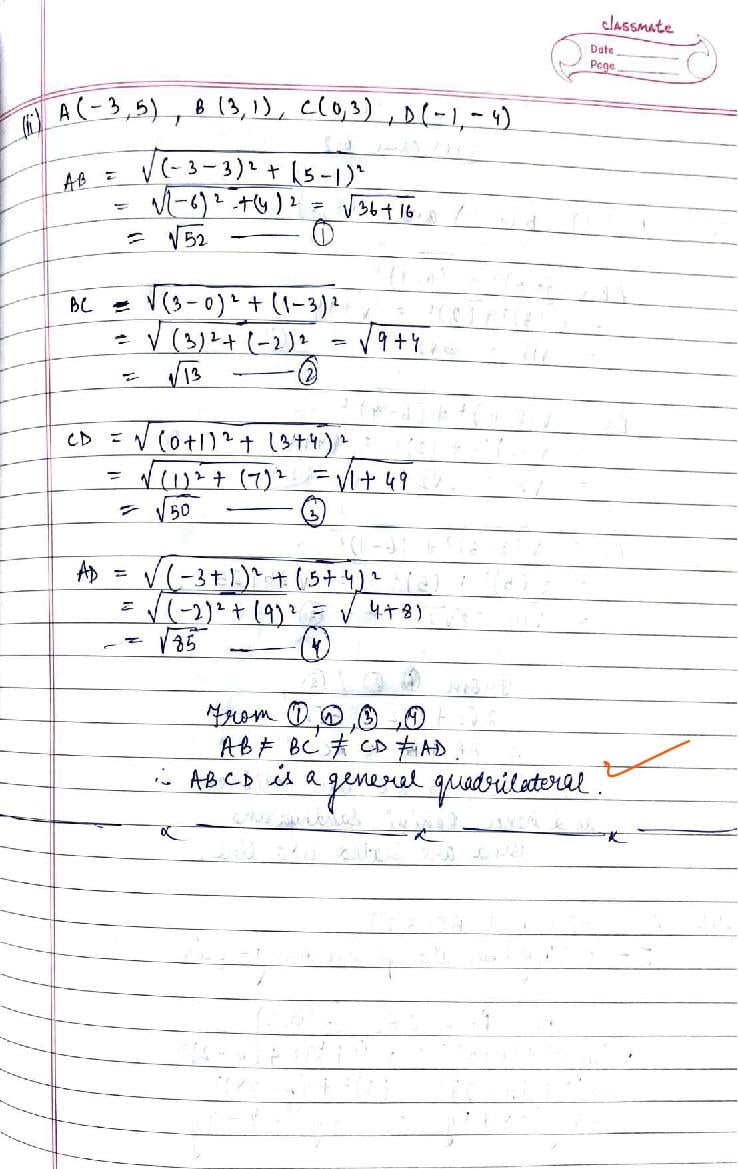 classmate
Date
Page
(ii) A(-3,5), B(3,1), C(0,3), D(-1,-4)
AB = √(-3-3)² + (5-1)²
= √(-6)² + (4)² = √36+16
= √52 —— ①
BC = √(3-0)² + (1-3)²
= √(3)² + (-2)² = √9+4
= √13 —— ②
CD = √(0+1)² + (3+4)²
= √(1)² + (7)² = √1+49
= √50 —— ③
AD = √(-3+1)² + (5+4)²
= √(-2)² + (9)² = √4+81
= √85 —— ④
From ①, ②, ③, ④
AB ≠ BC ≠ CD ≠ AD.
∴ ABCD is a general quadrilateral.